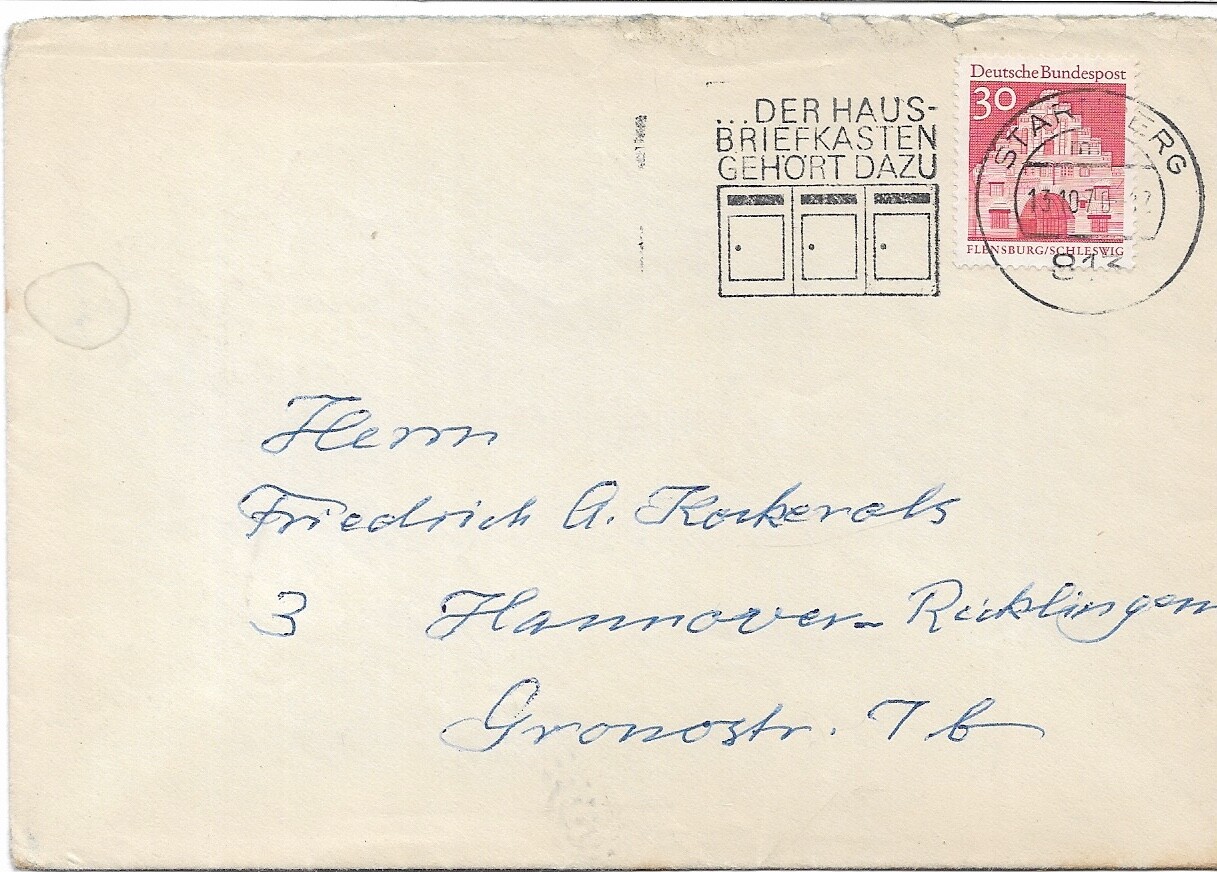 ...DER HAUS-
BRIEFKASTEN
GEHÖRT DAZU
Deutsche Bundespost
30
FLENSBURG/SCHLESWIG
STARNBERG
13.10.70
813
Herrn
Friedrich A. Kockerols
3 Hannover-Ricklingen
Gronostr. 7 b